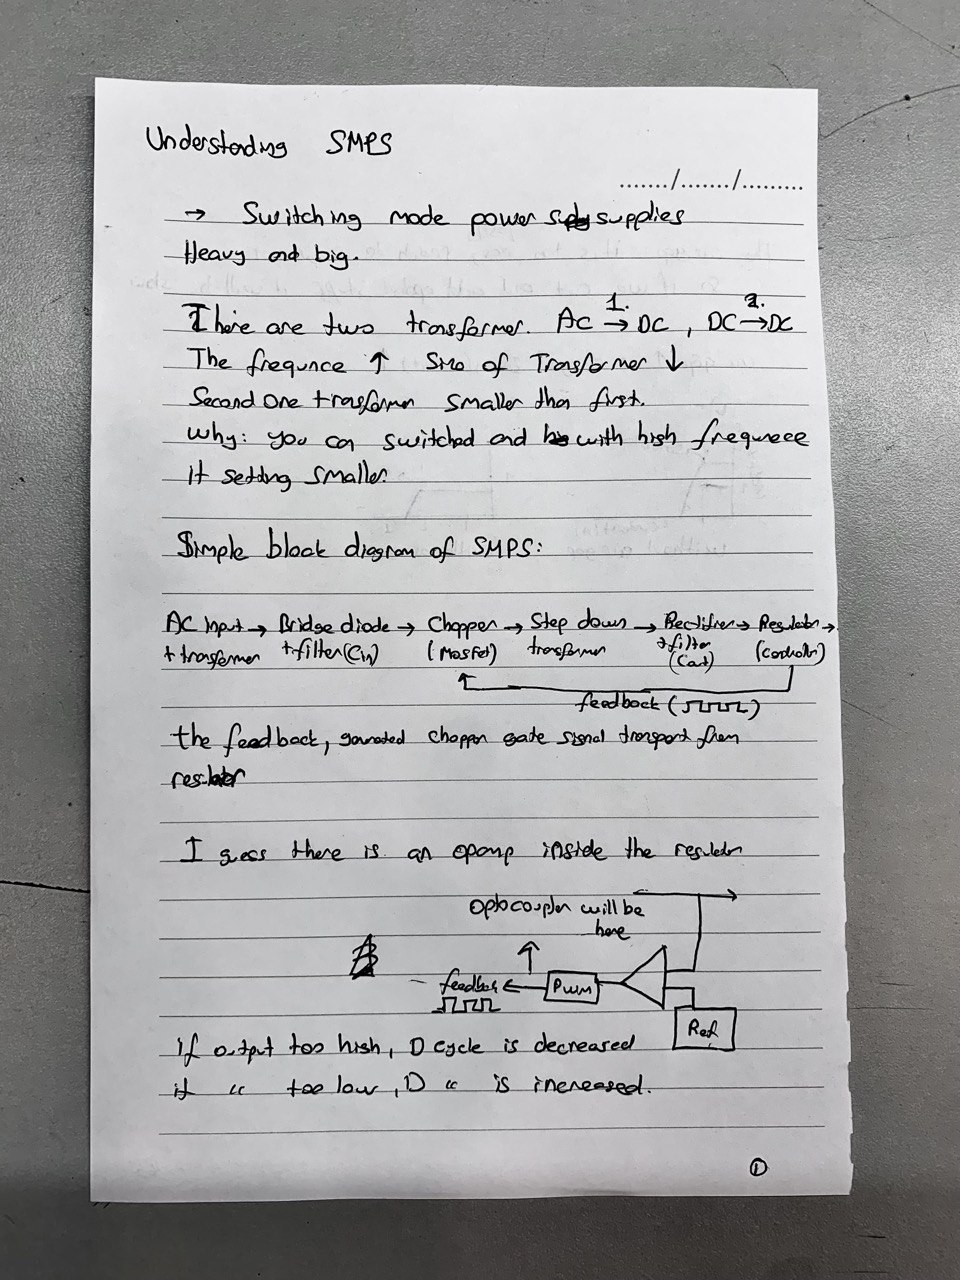 Understanding SMPS
......./......./.........
→ Switching mode power supplies
Heavy and big.
There are two transformer. AC 1.→ DC , DC 2.→ DC
The frequnce ↑ Size of Transformer ↓
Second one transformer smaller than first.
Why: you can switched and with high frequnece
it getting smaller.
Simple block diagram of SMPS:
AC input → Bridge diode → Chopper → Step down → Rectifier → Regulator →
+ transformer +filter(Cin) (Mosfet) transformer +filter (controller)
(Cout)
feedback (
)
the feedback, gounated chopper gate signal transport from
regulator
I guess there is an opamp inside the regulator
Optocoupler will be
here
feedback ← PWM
Ref
if output too high, D cycle is decreased
if “ too low, D “ is increased.
1